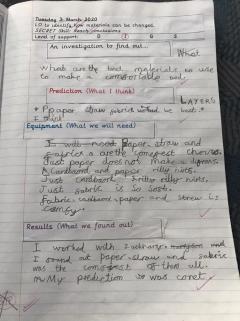 Tuesday 3 March 2020
LO to identify how materials can be changed.
SECRET Skill: Ready conclusions
Level of support:
An investigation to find out...
What
What are the best materials to use
to make a comfortable bed.
Prediction (What I think)
LAYERS
paper straw fabric best.
I think
Equipment (What we will need)
I will need paper straw and
fabrics are the comfiest
Just paper does not make a
Cardboard and paper rilly hirts.
Just cardboard rilly hirts.
Just fabric is so soft.
Fabric, cardboard, paper and strew is
comfy.
Results (What we found out)
I worked with
I found out paper straw and fabric
was the comfiest of them all.
My prediction was coret